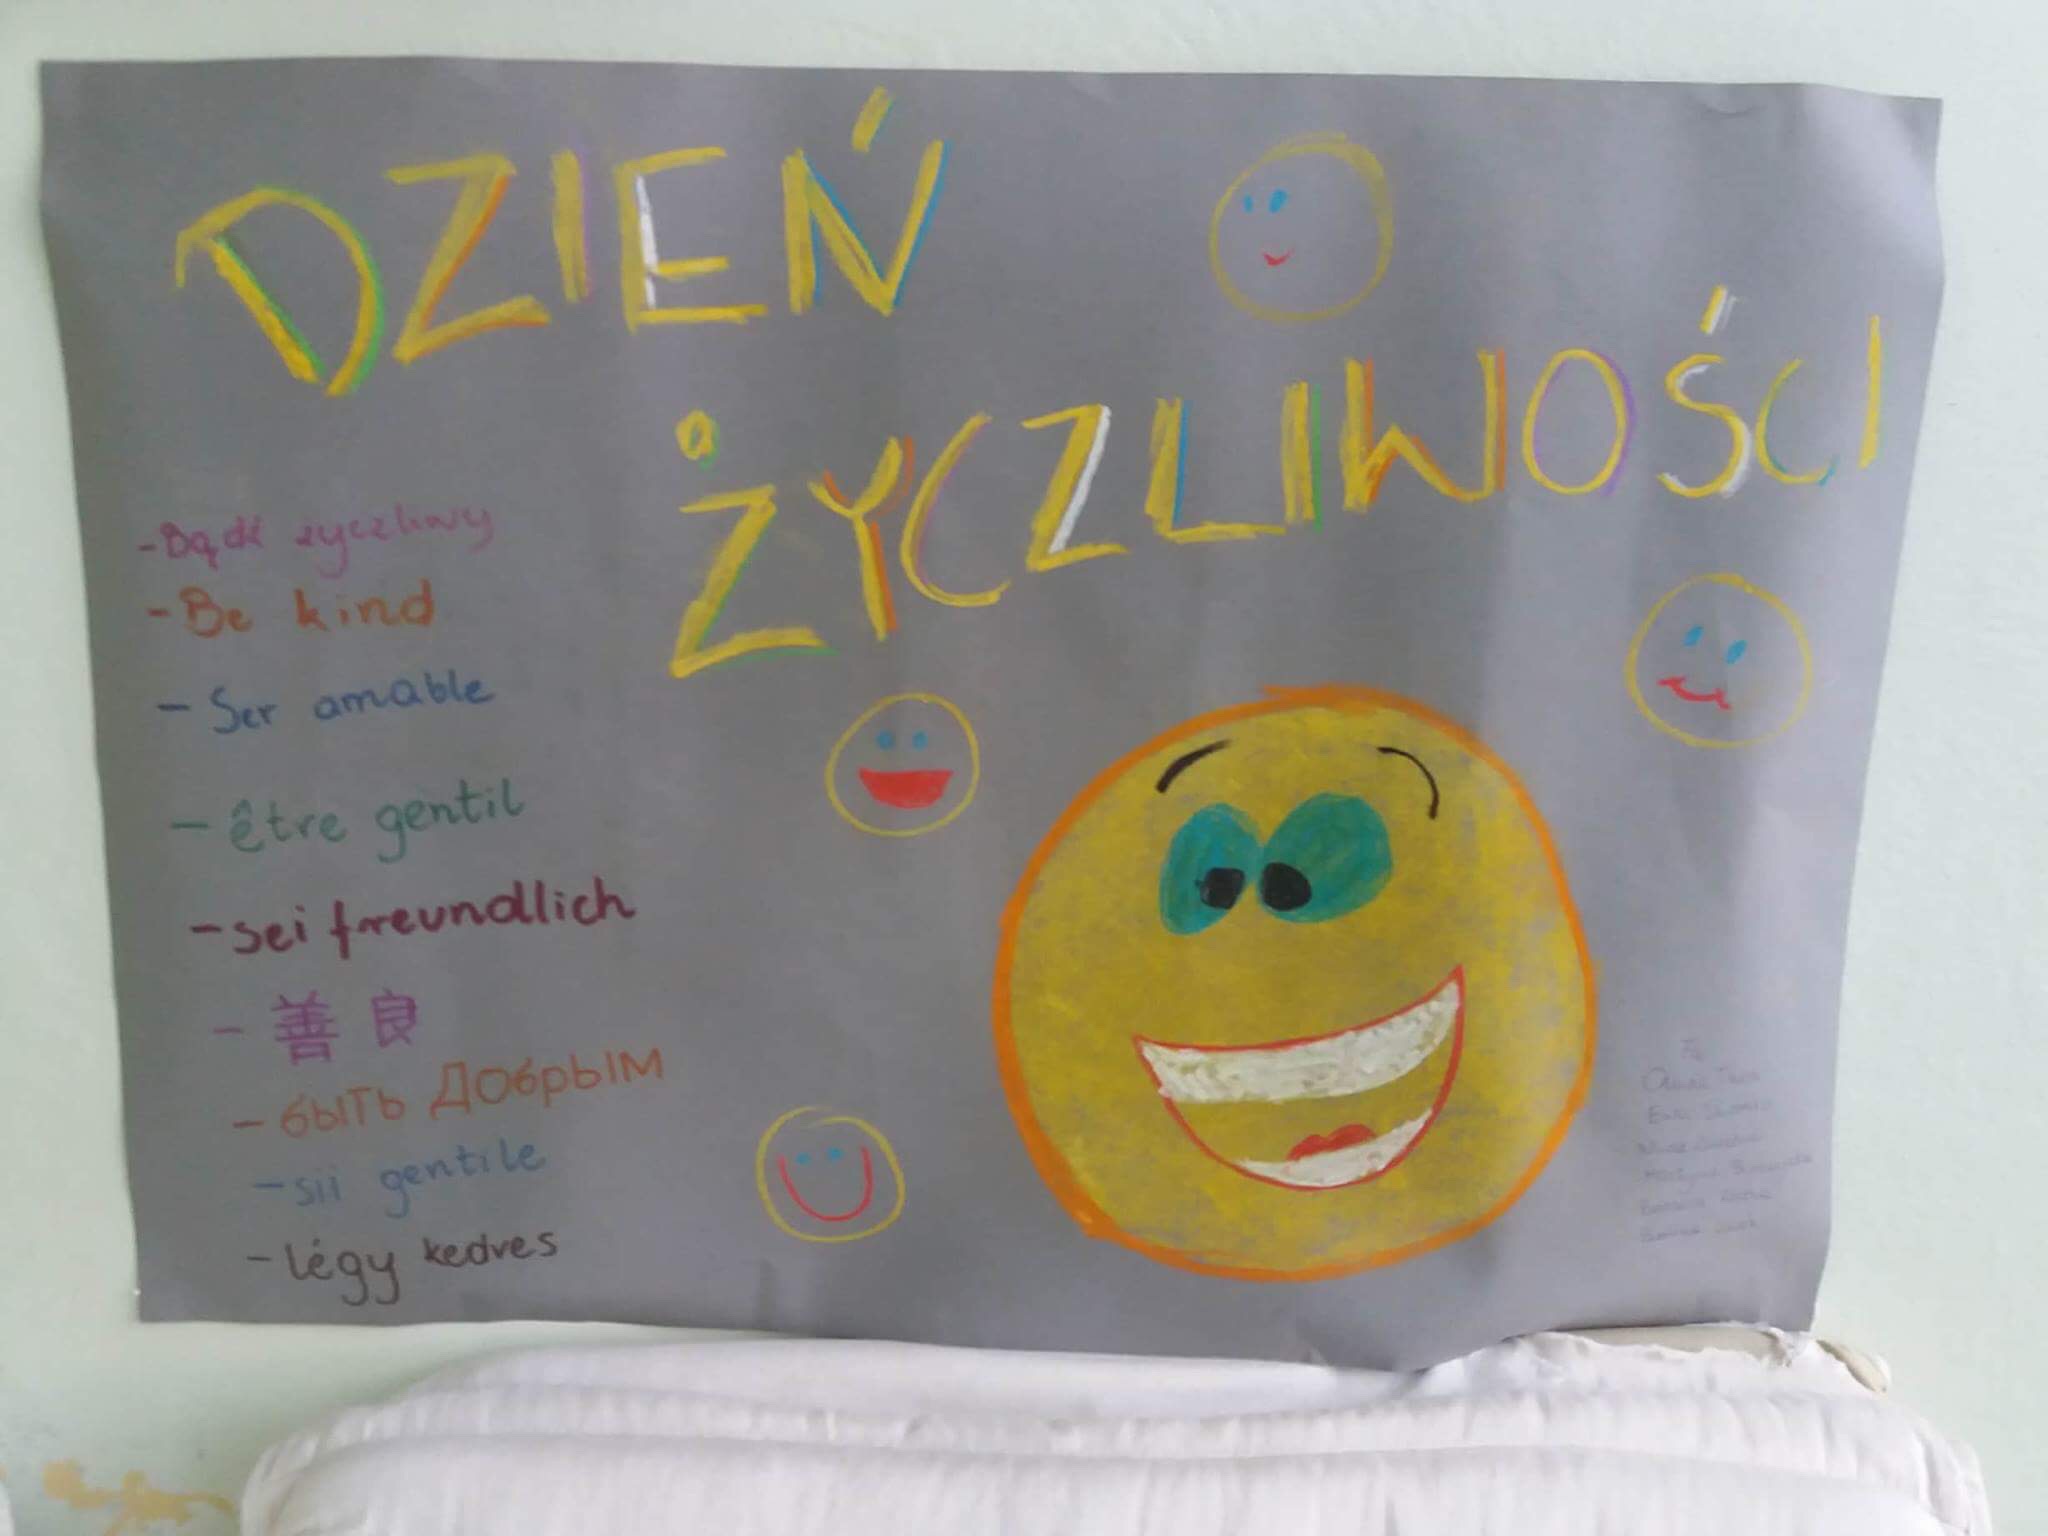 DZIEŃ
ŻYCZLIWOŚCI
- Bądź życzliwy
- Be kind
- Ser amable
- être gentil
- sei freundlich
- 善良
- быть Добрым
- sii gentile
- légy kedves